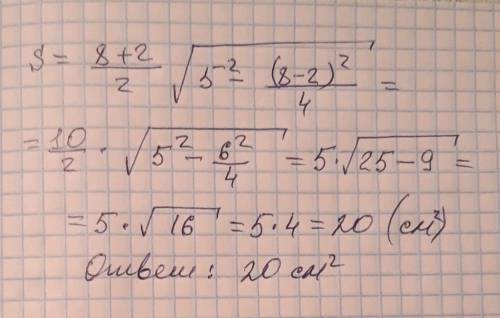 S = (8+2)/2 √(5² − (8−2)²/4) =
= 10/2 · √(5² − 6²/4) = 5·√(25−9) =
= 5·√16 = 5·4 = 20 (см²)
Ответ: 20 см²